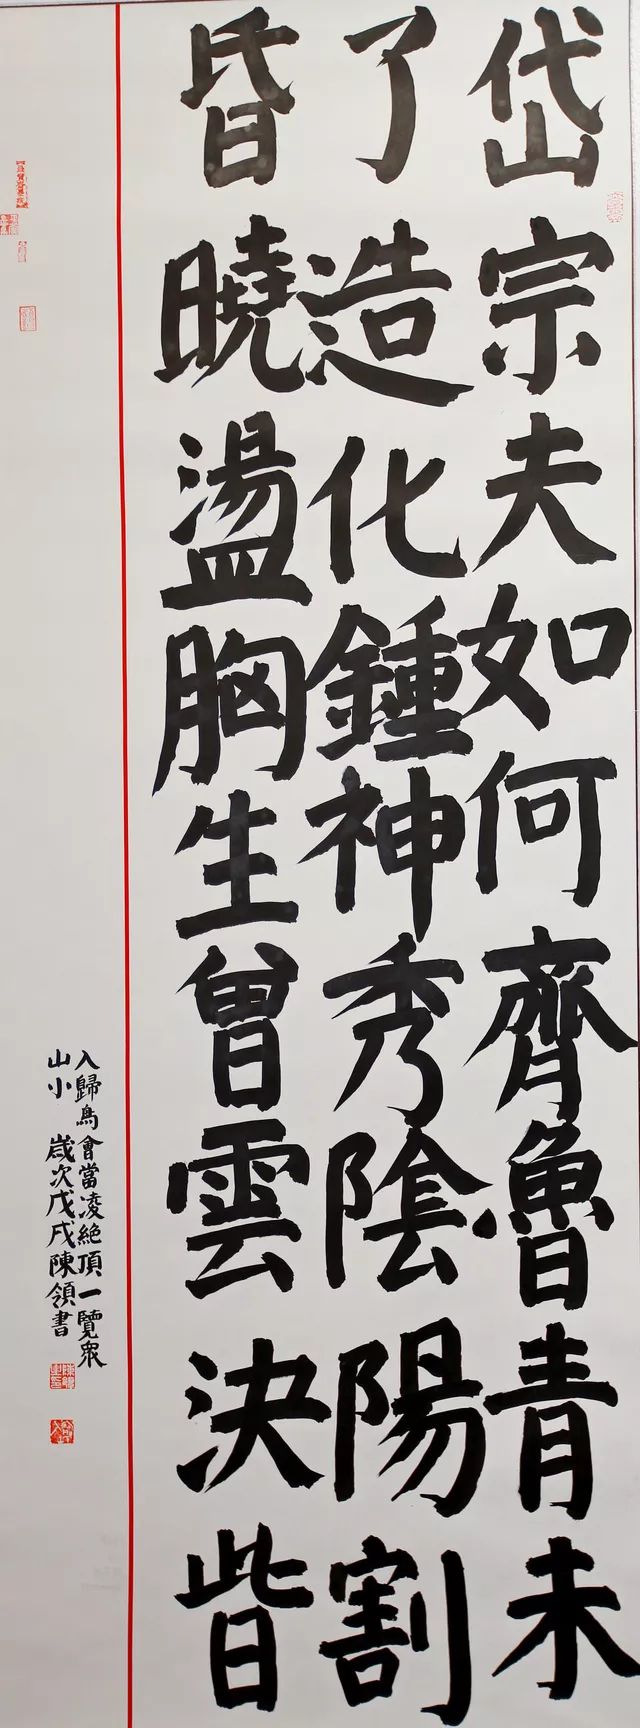 岱宗夫如何齊魯青未
了造化鍾神秀陰陽割
昏曉盪胸生曾雲決眥
入歸鳥會當凌絕頂一覽衆
山小 歲次戊戌陳領書